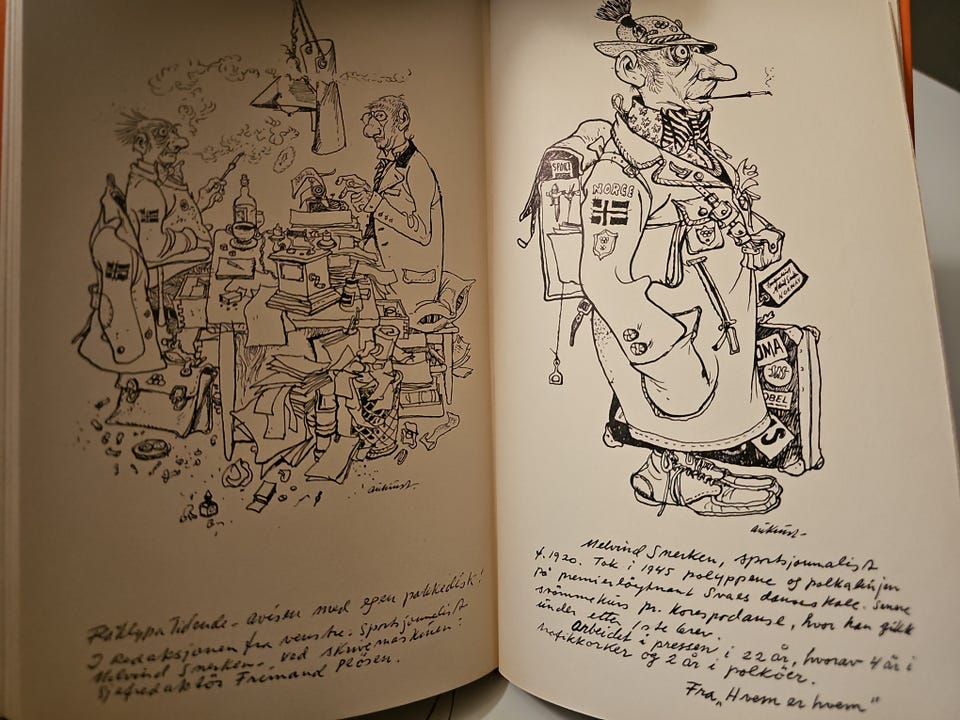 aukrust-
Flåklypa Tidende - avisen med egen pakkedisk!
I redaksjonen fra venstre: Sportsjournalist
Melvind Snerken - Ved skrivemaskinen:
Sjefredaktör Frimand Plösen.
SPORT
NORGE
NORGE
OMA
OBEL
S
aukrust-
Melvind Snerken, sportsjournalist
f. 1920. Tok i 1945 polyppene og polkalinjen
på premierlöytnant Svaes danseskole. Senere
svömmekurs pr. korespodanse, hvor han gikk
under etter 1ste brev.
Arbeidet i pressen i 22 år, hvorav 4 år i
trafikkorker og 2 år i polköer.
Fra "Hvem er hvem"